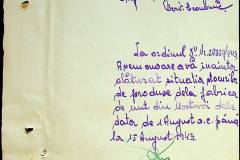 Serv. Economic
La ordinul Dv. Nr. 20320/943
Avem onoare a vă înainta
alăturat situația stocurilor
de produse dela fabrica
de unt din Nostru dela
data de 1 August a.c. până
la 15 August 1943.